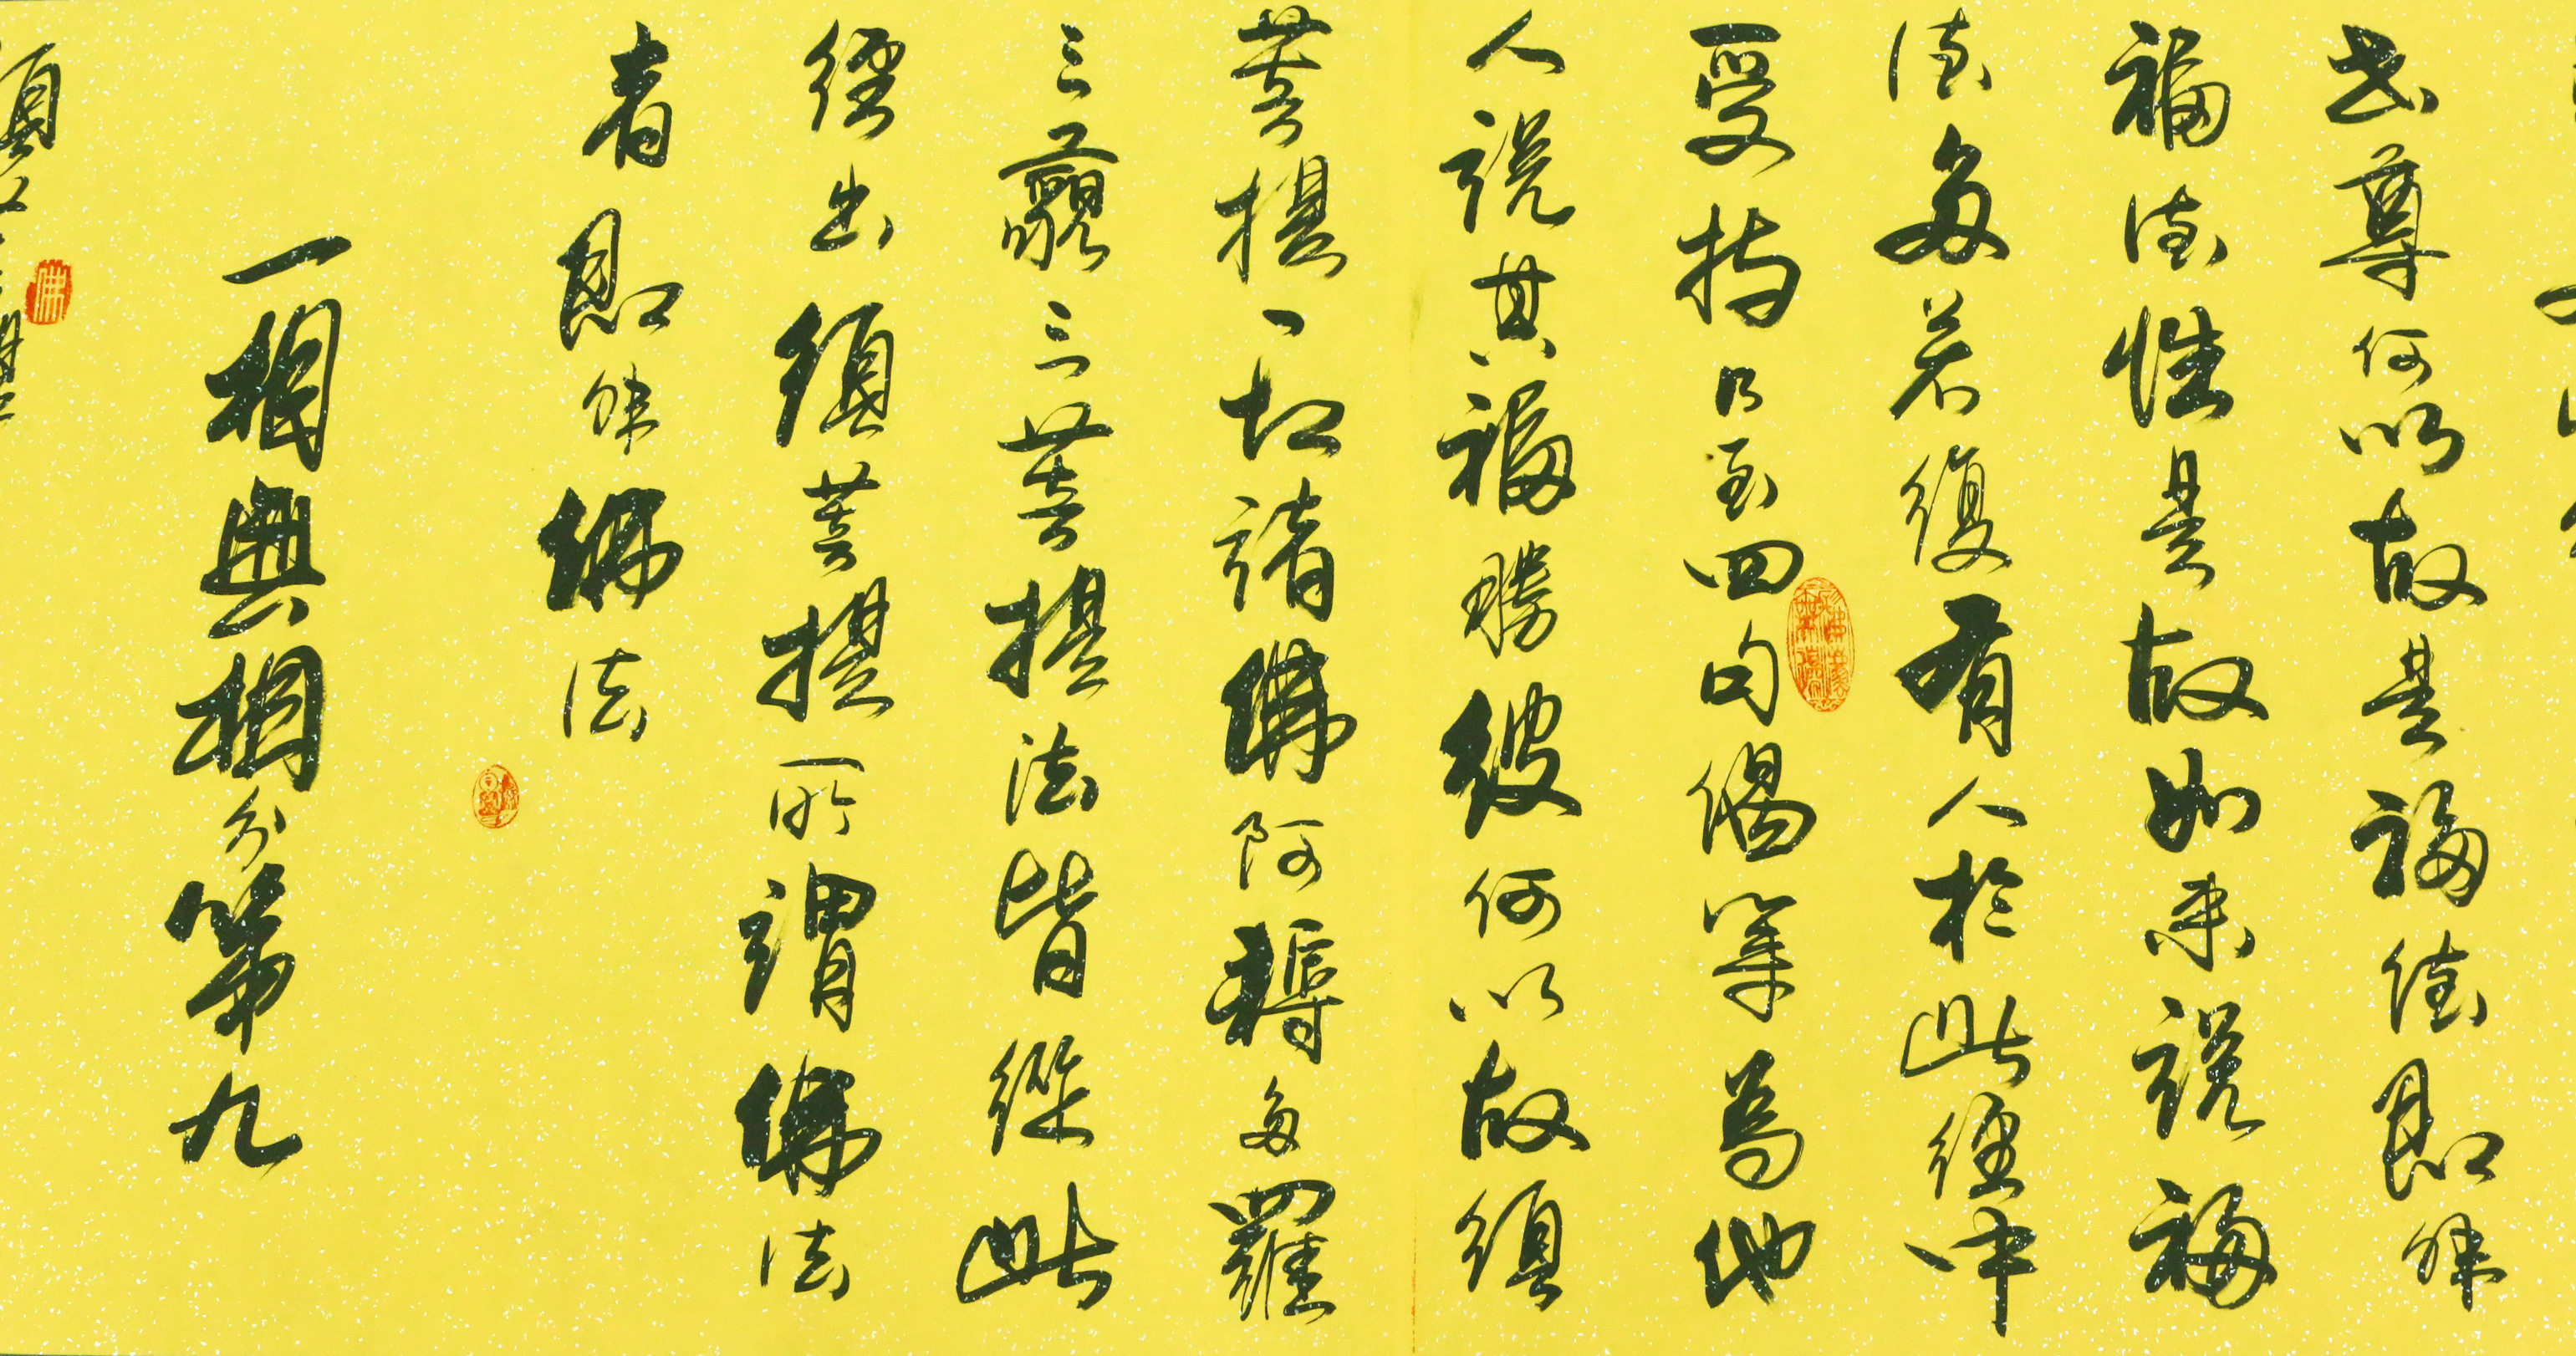 世尊何以故是福德即非
福德性是故如來說福
德多若復有人於此經中
受持乃至四句偈等為他
人說其福勝彼何以故須
菩提一切諸佛阿耨多羅
三藐三菩提法皆從此
經出須菩提所謂佛法
者即非佛法
一相無相分第九
佛